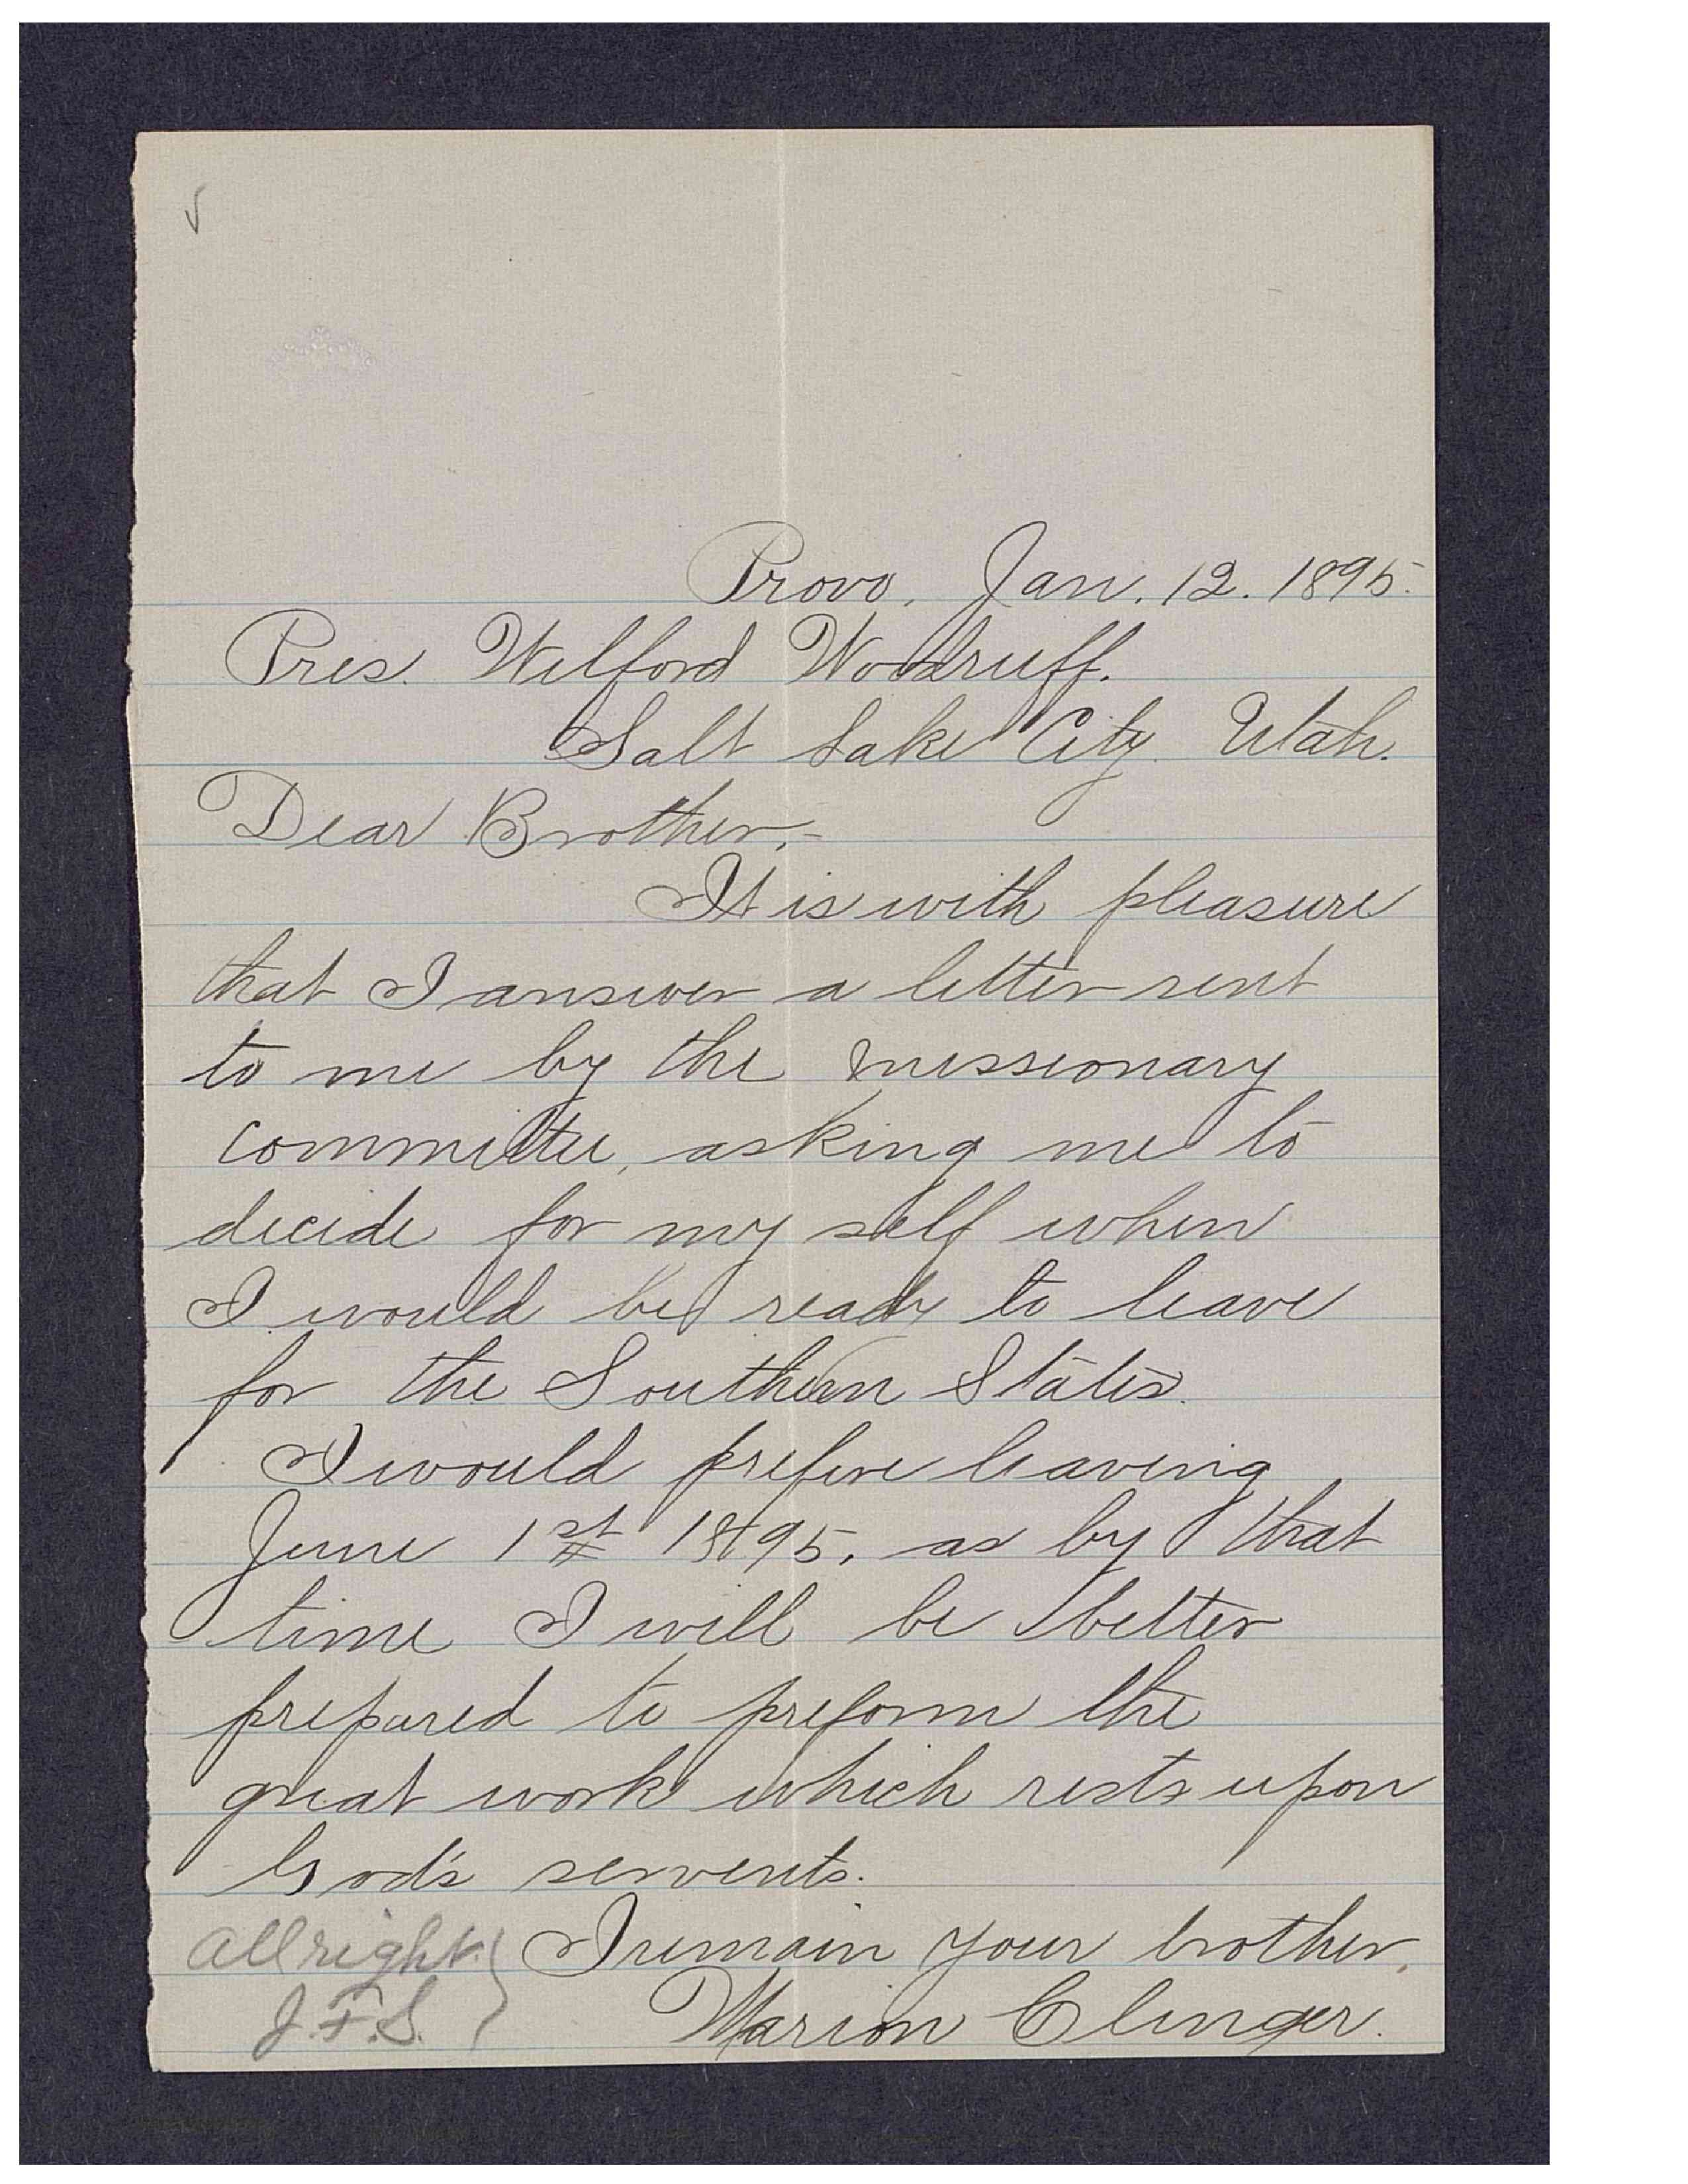 Provo, Jan. 12. 1895.
Pres. Wilford Woodruff.
Salt Lake City. Utah.
Dear Brother,-
It is with pleasure
that I answer a letter sent
to me by the missionary
committee, asking me to
decide for my self when
I would be ready to leave
for the Southern States.
I would prefere leaving
June 1st 1895, as by that
time I will be better
prepared to preform the
great work which rests upon
God's servents.
I remain your brother,
Marion Clinger.
All right.
J.F.S.